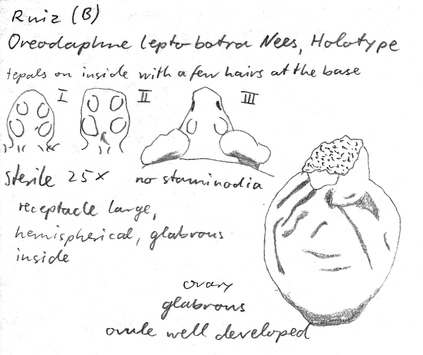 Ruiz (B)
Oreodaphne leptobotra Nees, Holotype
tepals on inside with a few hairs at the base
I II III
sterile 25x no staminodia
receptacle large,
hemispherical, glabrous
inside
ovary
glabrous
ovule well developed